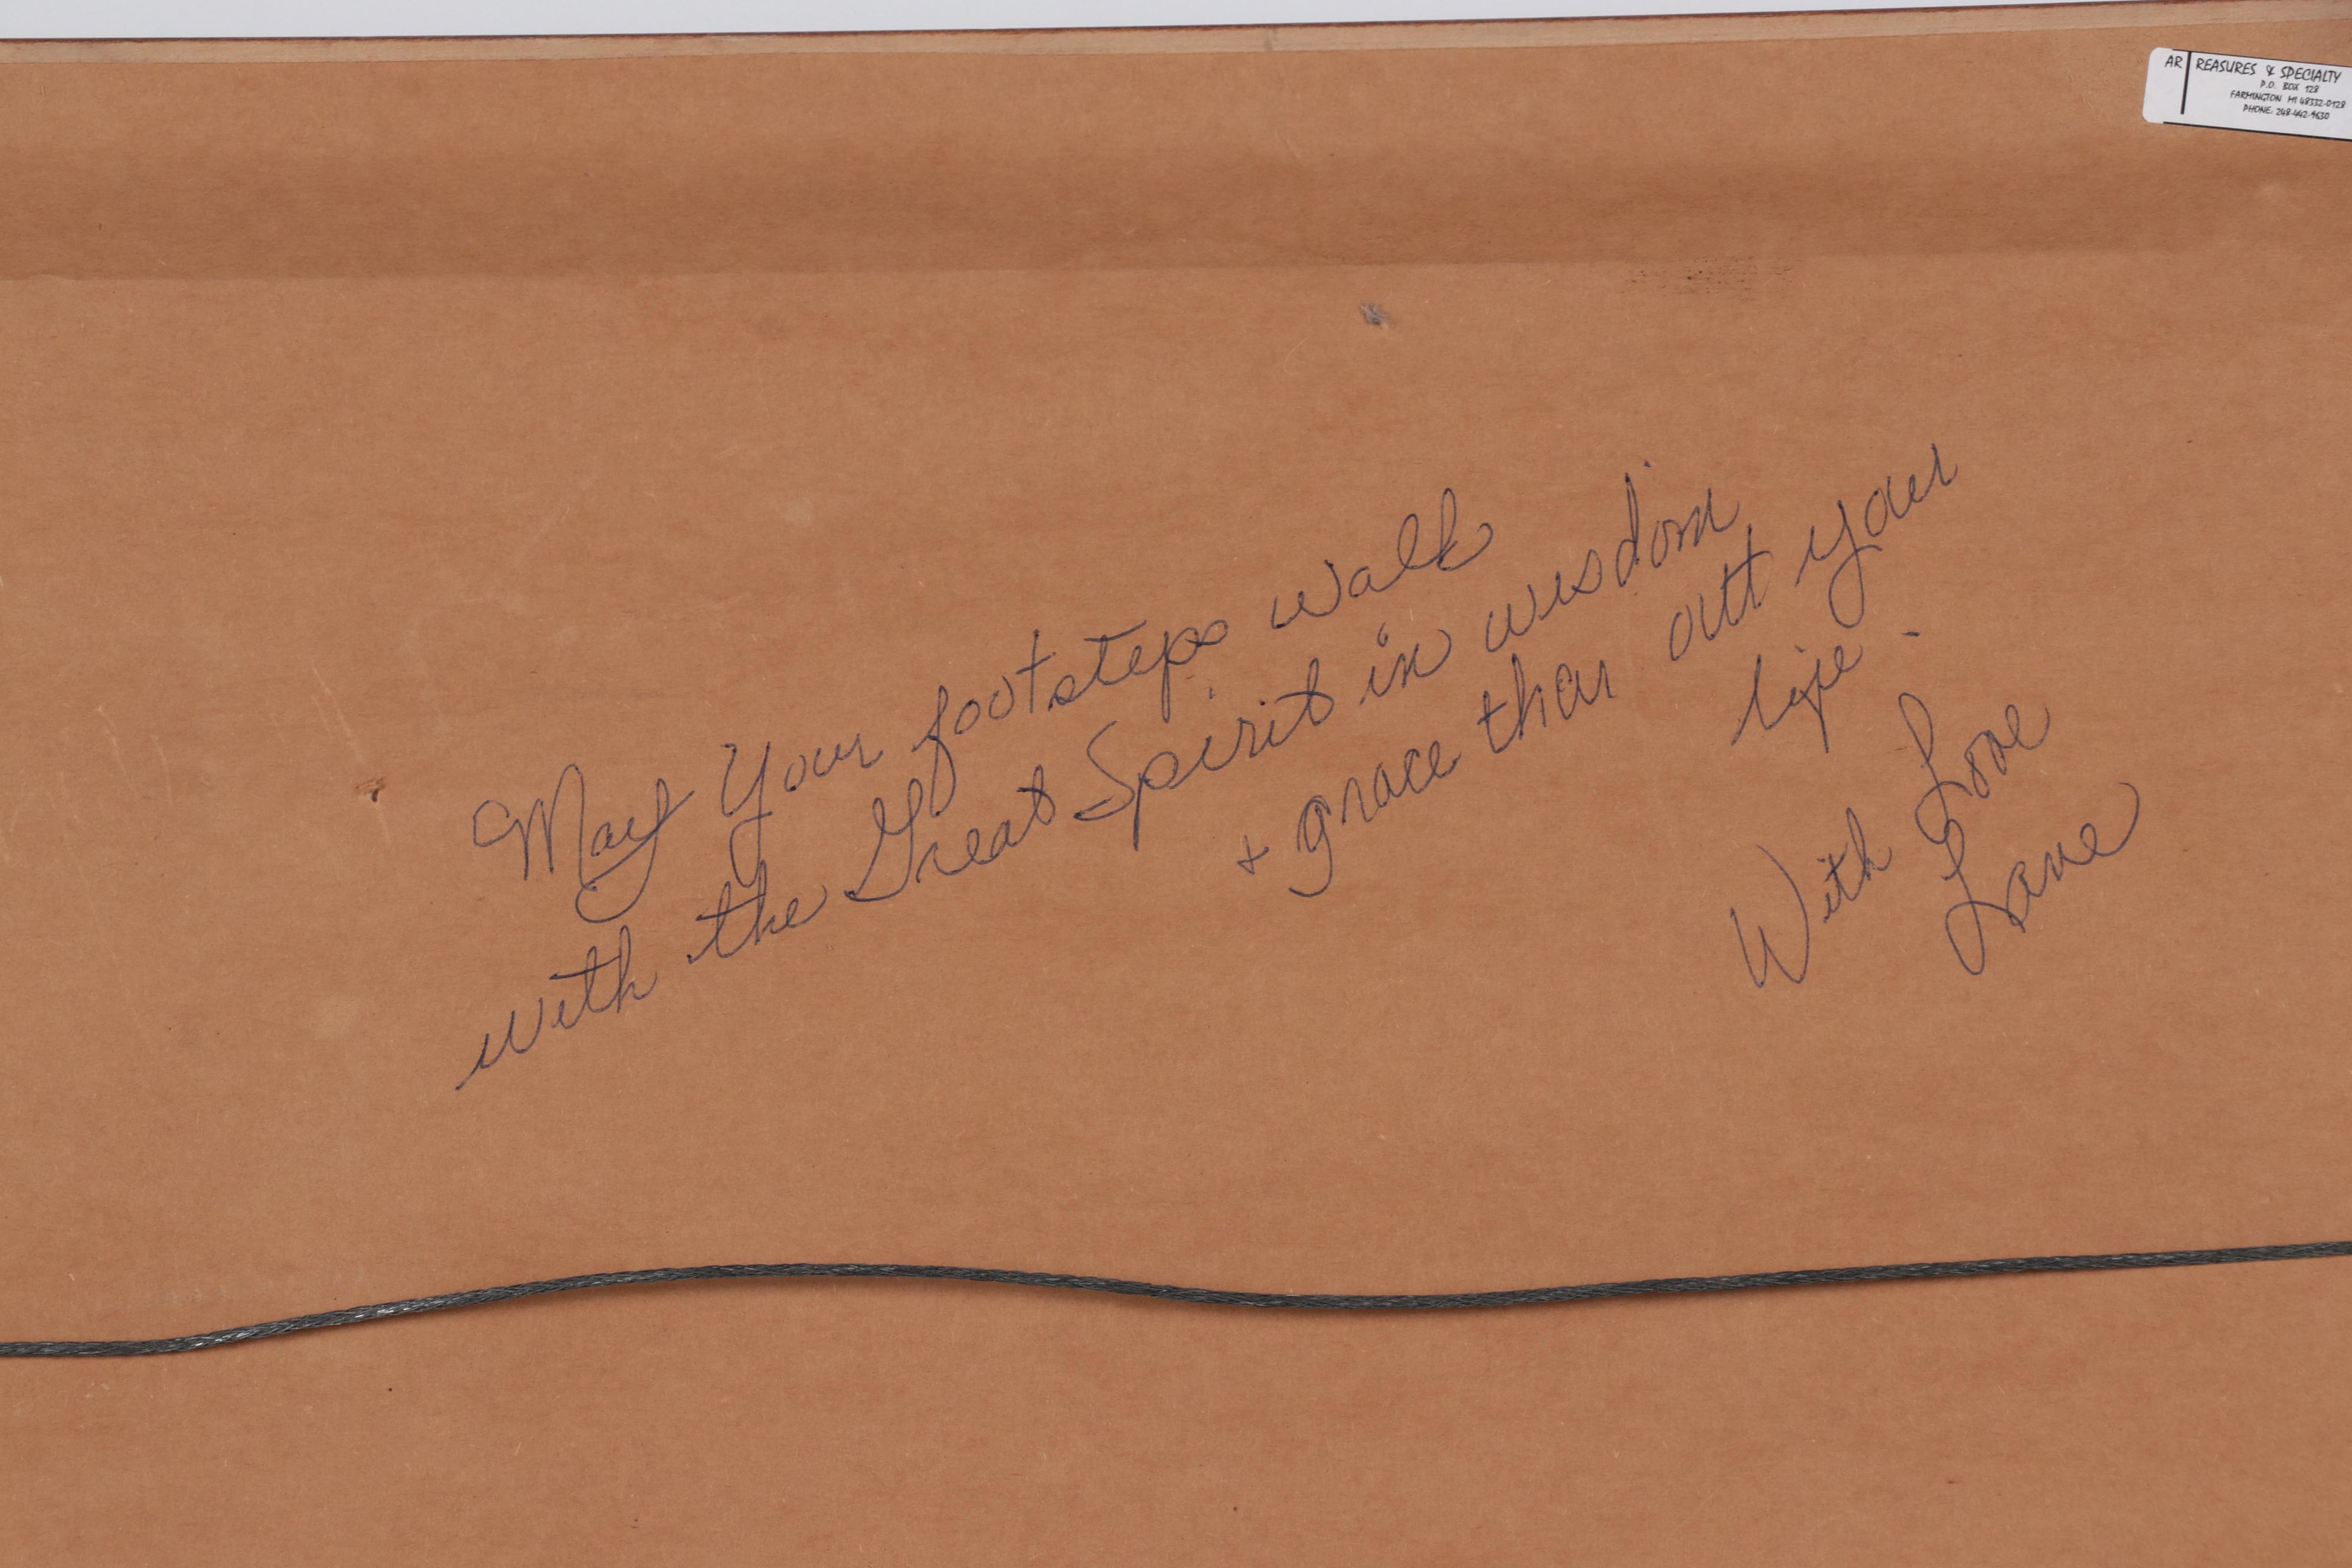 AR REASURES & SPECIALTY
P.O. BOX 128
FARMINGTON MI 48332-0128
PHONE: 248-442-9630
May Your footsteps walk
with the Great Spirit in wisdom
+ grace thru out your
life.
With Love
Lane